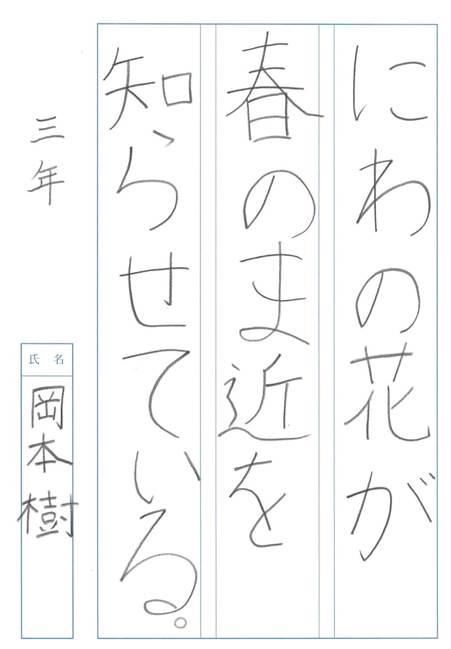 にわの花が
春のま近を
知らせている。
三年
氏名
岡本樹